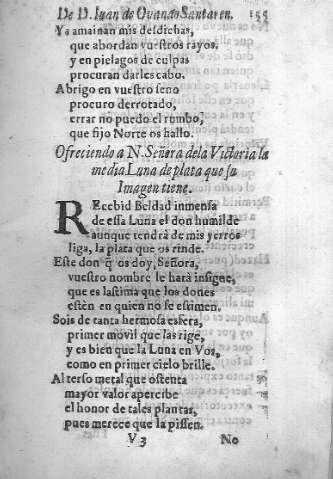 De D. Iuan de Ouando Santaren. 155
Ya amainan mis desdichas,
que abordan vuestros rayos,
y en pielagos de culpas
procuran darles cabo.
Abrigo en vuestro seno
procuro derrotado,
errar no puedo el rumbo,
que fijo Norte os hallo.
Ofreciendo a N. Señora dela Victoria la
media Luna de plata que su
Imagen tiene.
REcebid Beldad inmensa
de essa Luna el don humilde
aunque tendrà de mis yerros
liga, la plata que os rinde.
Este don q̃ os doy, Señora,
vuestro nombre le harà insigne,
que es lastima que los dones
estèn en quien no se estimen.
Sois de tanta hermosa esfera,
primer movil que las rige,
y es bien que la Luna en Vos,
como en primer cielo brille.
Al terso metal que ostenta
mayor valor apercibe
el honor de tales plantas,
pues merece que la pissen.
V 3 No